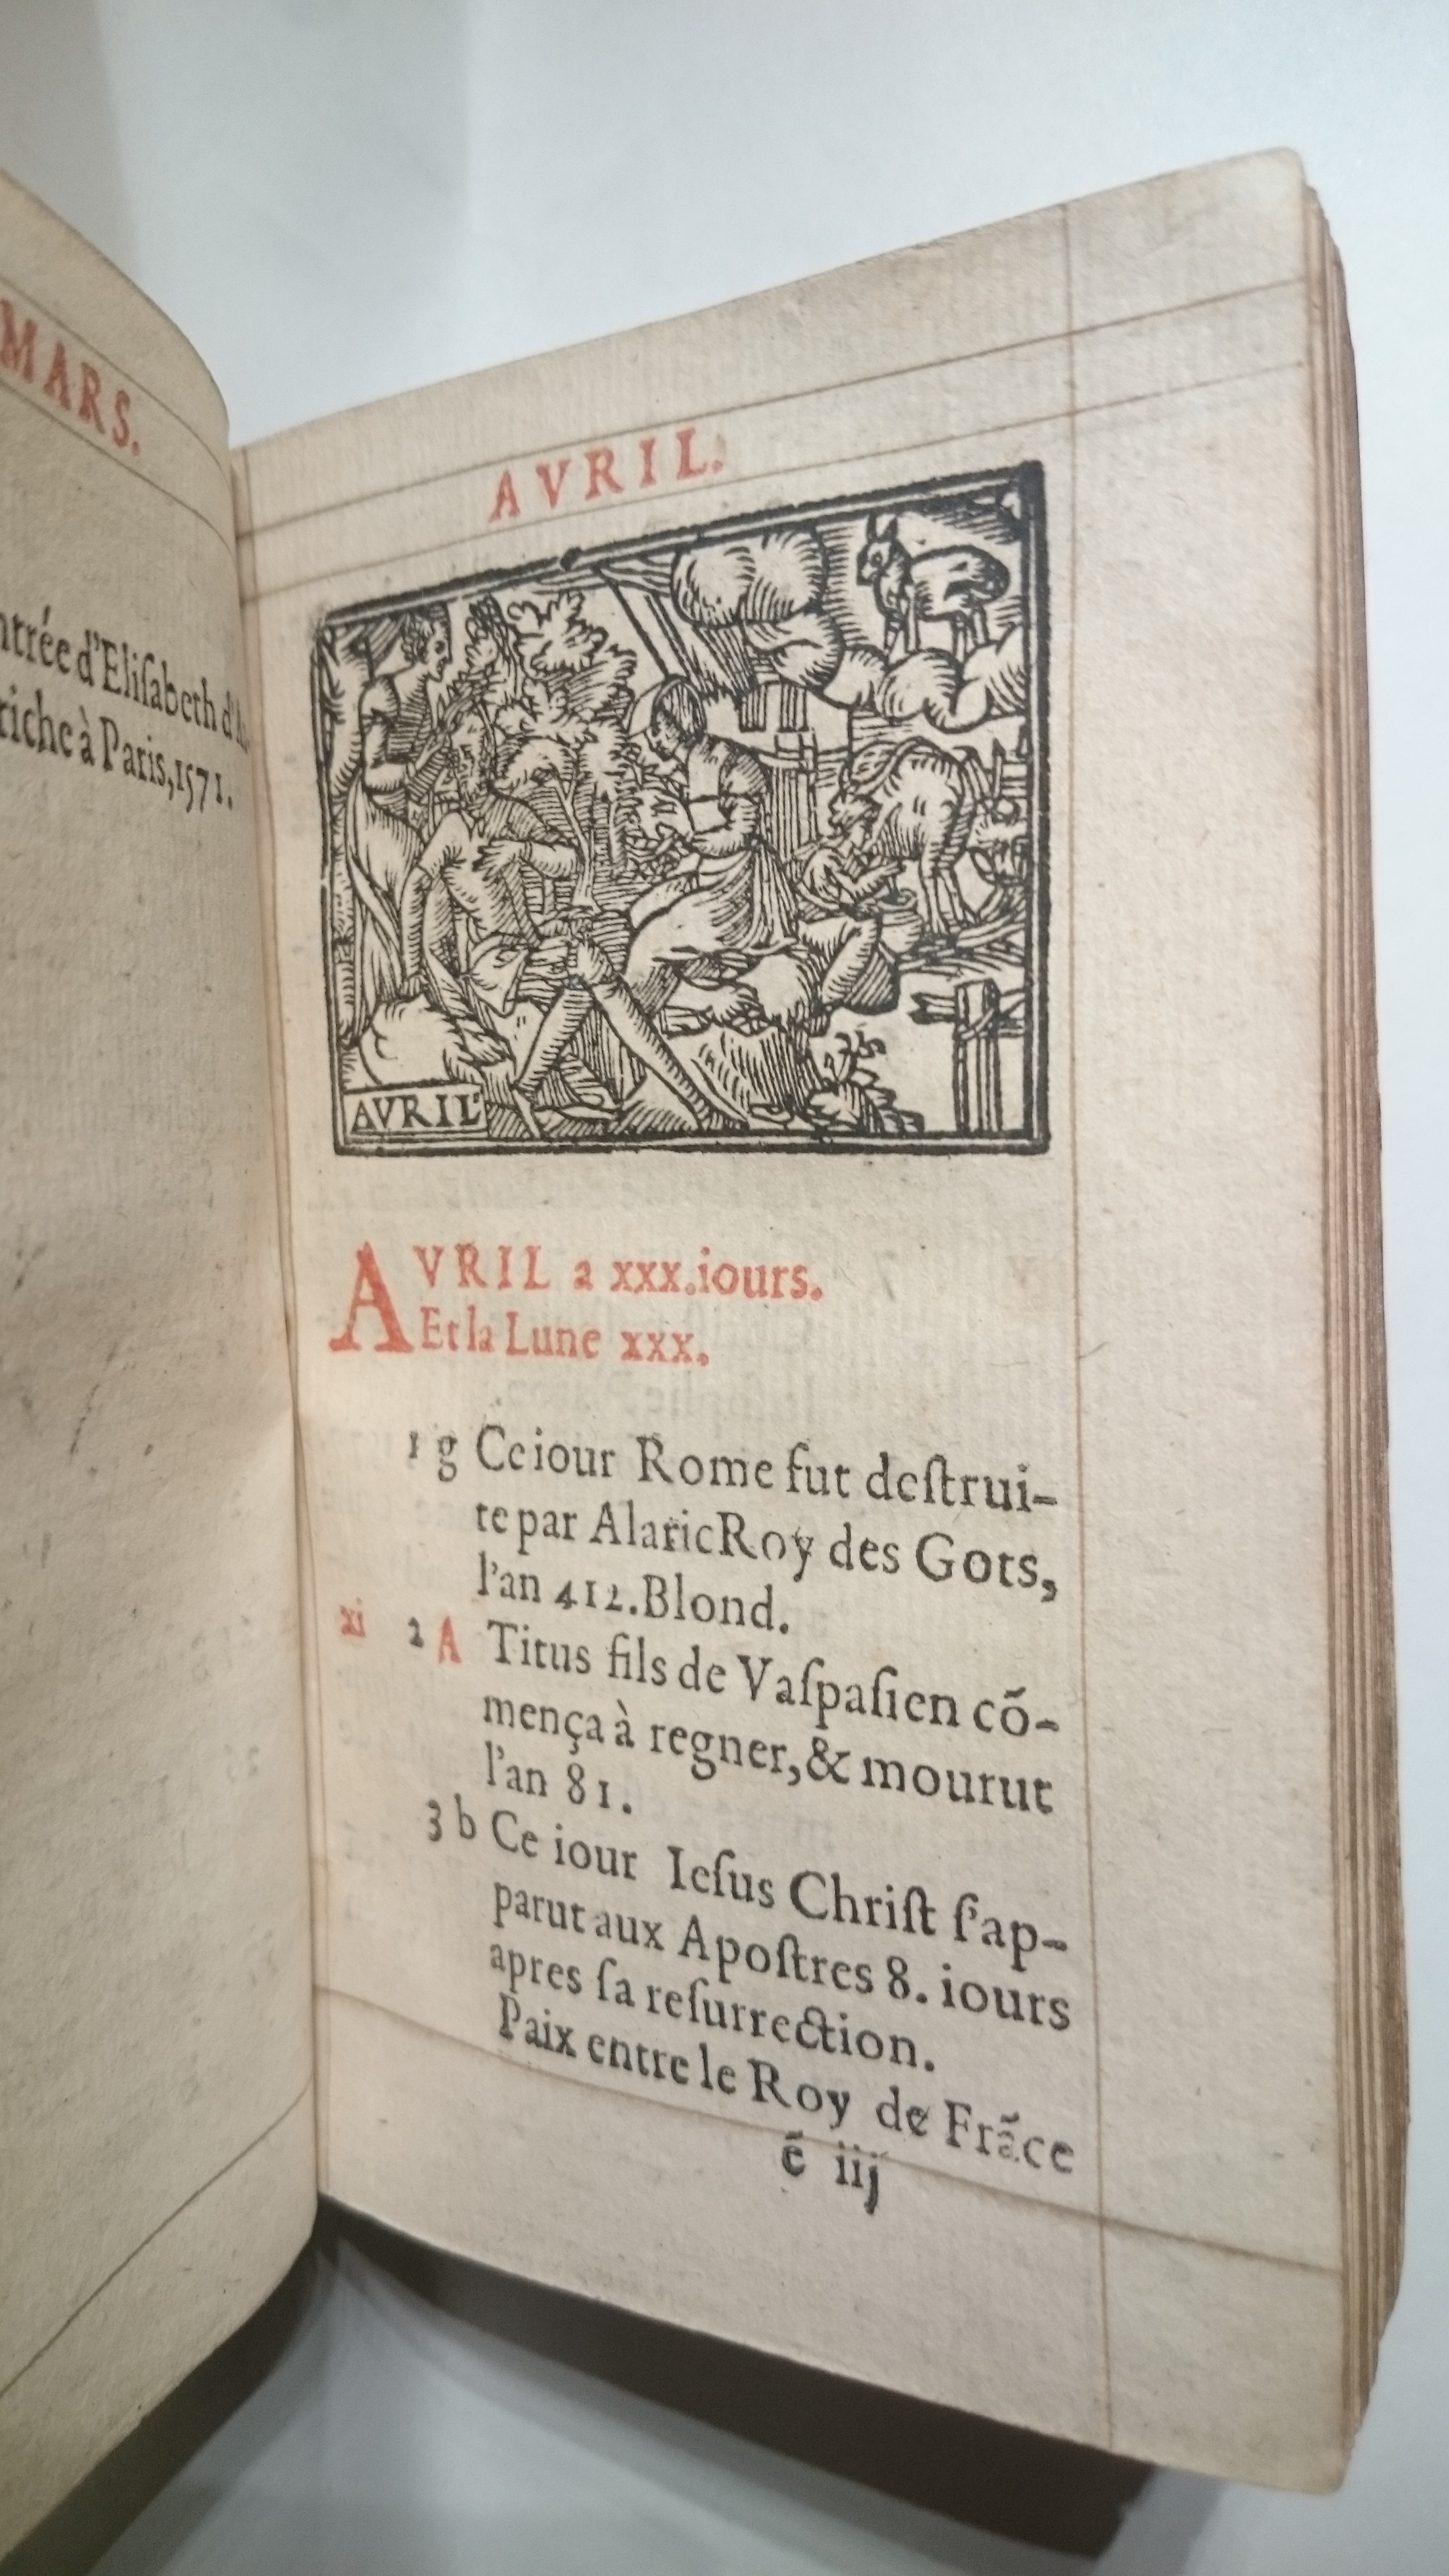 MARS.
ntrée d'Eliſabeth d'A.
riche à Paris, 1571.
AVRIL.
AVRIL
AVRIL a xxx. iours.
Et la Lune xxx.
1 g Ce iour Rome fut deſtrui-
te par Alaric Roy des Gots,
l'an 412. Blond.
xi 2 A Titus fils de Vaſpaſien cõ-
mença à regner, & mourut
l'an 81.
3 b Ce iour Ieſus Chriſt ſ'ap-
parut aux Apoſtres 8. iours
apres ſa reſurrection.
Paix entre le Roy de Frãce
ẽ iij